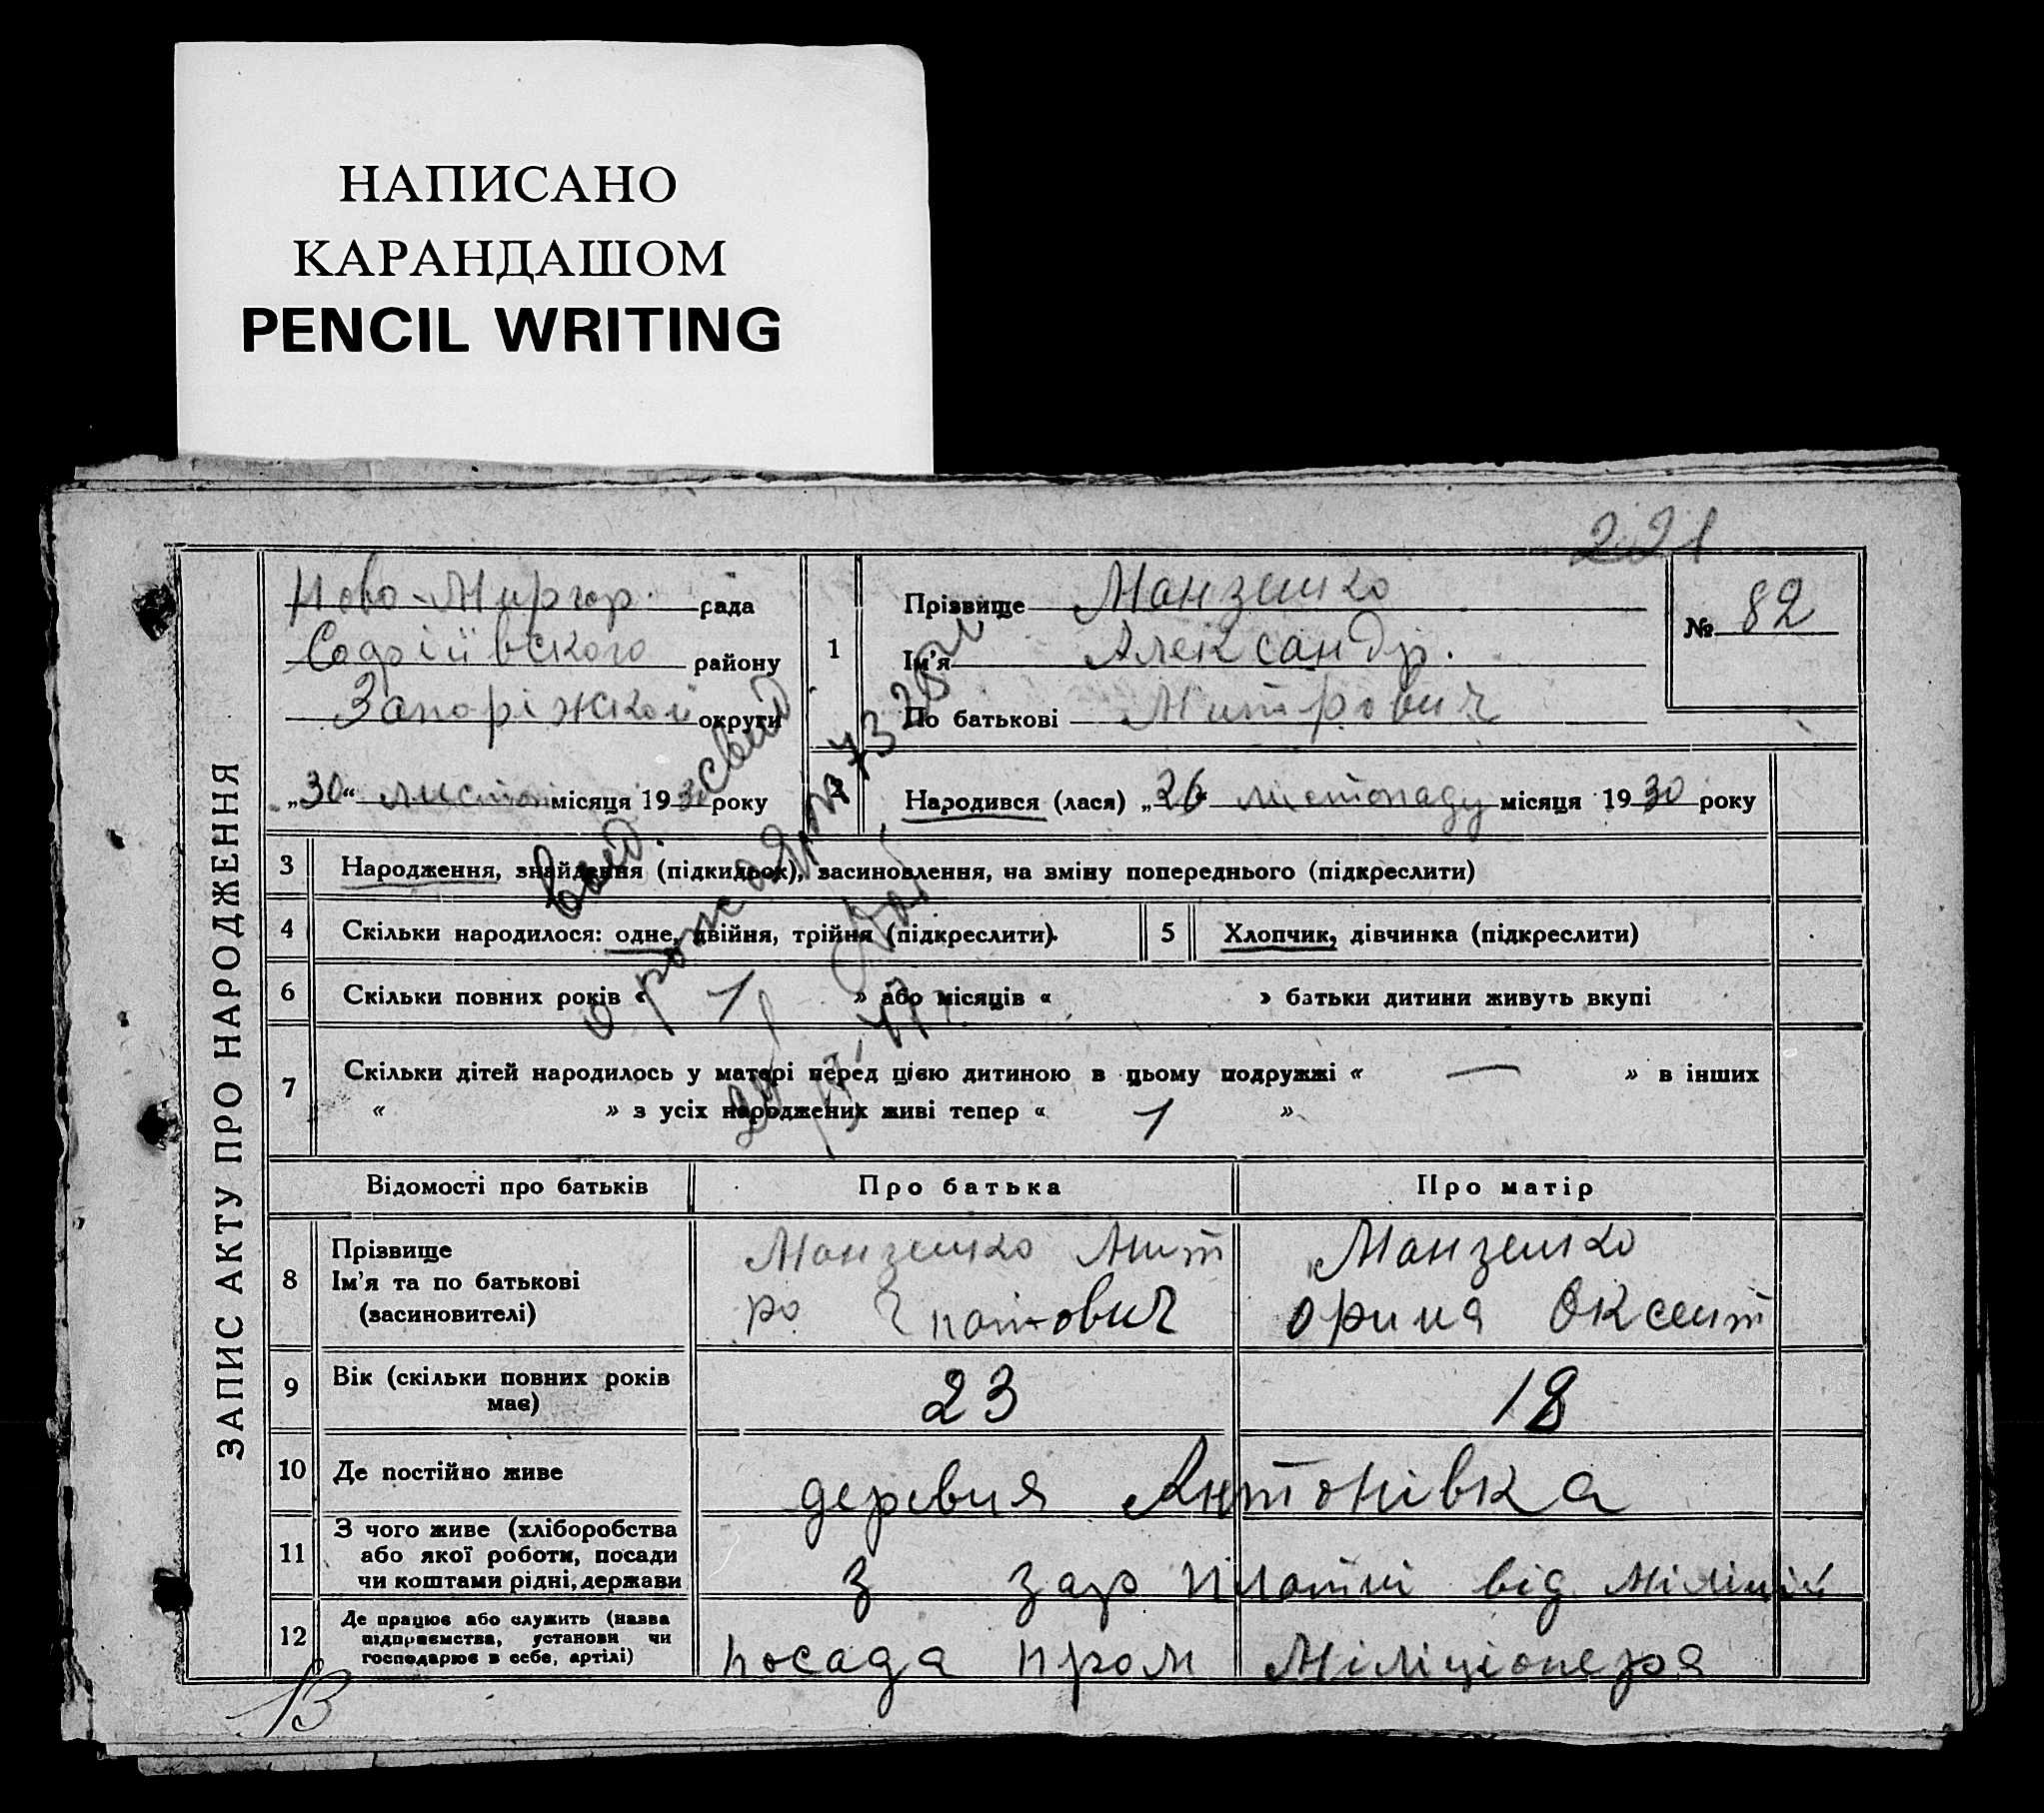 НАПИСАНО
КАРАНДАШОМ
PENCIL WRITING
221
ЗАПИС АКТУ ПРО НАРОДЖЕННЯ
Ново-Миргор. рада
району
Запоріжкой округи
„30“ листоп місяця 1930 року
1
Прізвище Манзешко
Ім'я Александр.
По батькові Митрович
№ 82
2
Народився (лася) „26“ листопаду місяця 1930 року
3 Народження, знайдення (підкидьок), засиновлення, на зміну попереднього (підкреслити)
4 Скільки народилося: одне, двійня, трійня (підкреслити).
5 Хлопчик, дівчинка (підкреслити)
6 Скільки повних років « 1 » або місяців « » батьки дитини живуть вкупі
7 Скільки дітей народилось у матері перед цією дитиною в цьому подружжі « — » в інших
« » з усіх народжених живі тепер « 1 »
Відомості про батьків Про батька Про матір
8 Прізвище
Ім'я та по батькові
(засиновителі)
Манзешко Мит
ро
Манзешко
орина Оксент
9 Вік (скільки повних років
має)
23 18
10 Де постійно живе деревня Антонівка
11 З чого живе (хліборобства
або якої роботи, посади
чи коштами рідні, держави
з зар платні від міліції
12 Де працює або служить (назва
підприємства, установи чи
господарює в себе, артілі)
посада пром Міліціонера
В